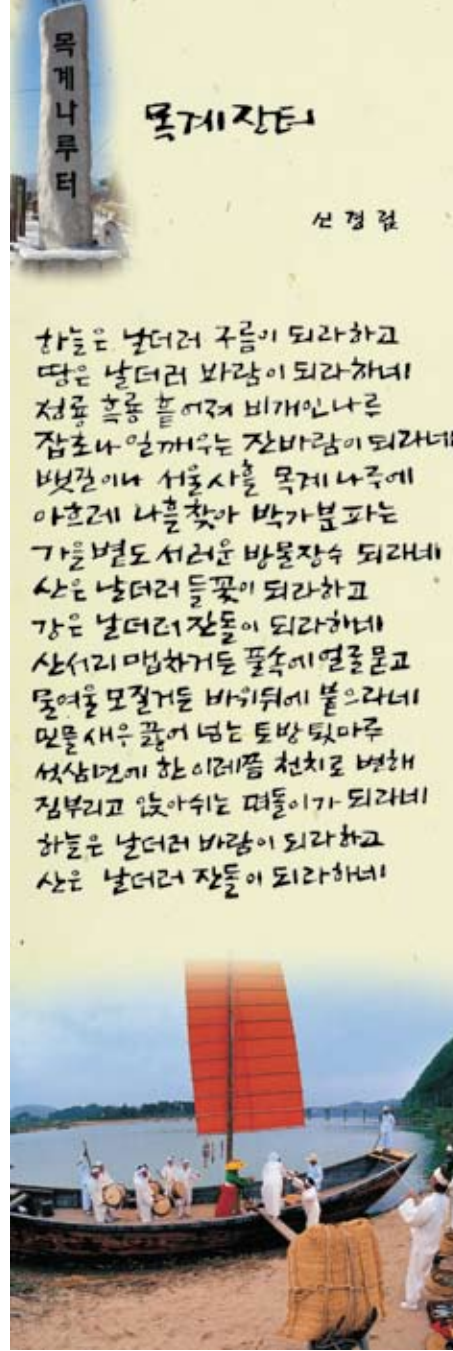 목계나루터
목계장터
신경림
하늘은 날더러 구름이 되라하고
땅은 날더러 바람이 되라하네
청룡 흑룡 흩어져 비개인나루
잡초나 일깨우는 잔바람이되라네
뱃길이나 서울사흘 목계 나루에
아흐레 나흘찾아 박가분파는
가을볕도 서러운 방물장수 되라네
산은 날더러 들꽃이 되라하고
강은 날더러 잔돌이 되라하네
산서리 맵차거든 풀속에얼굴묻고
물여울 모질거든 바위뒤에 붙으라네
민물새우 끓어 넘는 토방 툇마루
석삼년에 한 이레쯤 천치로 변해
짐부리고 앉아쉬는 떠돌이가 되라네
하늘은 날더러 바람이 되라하고
산은 날더러 잔돌이 되라하네